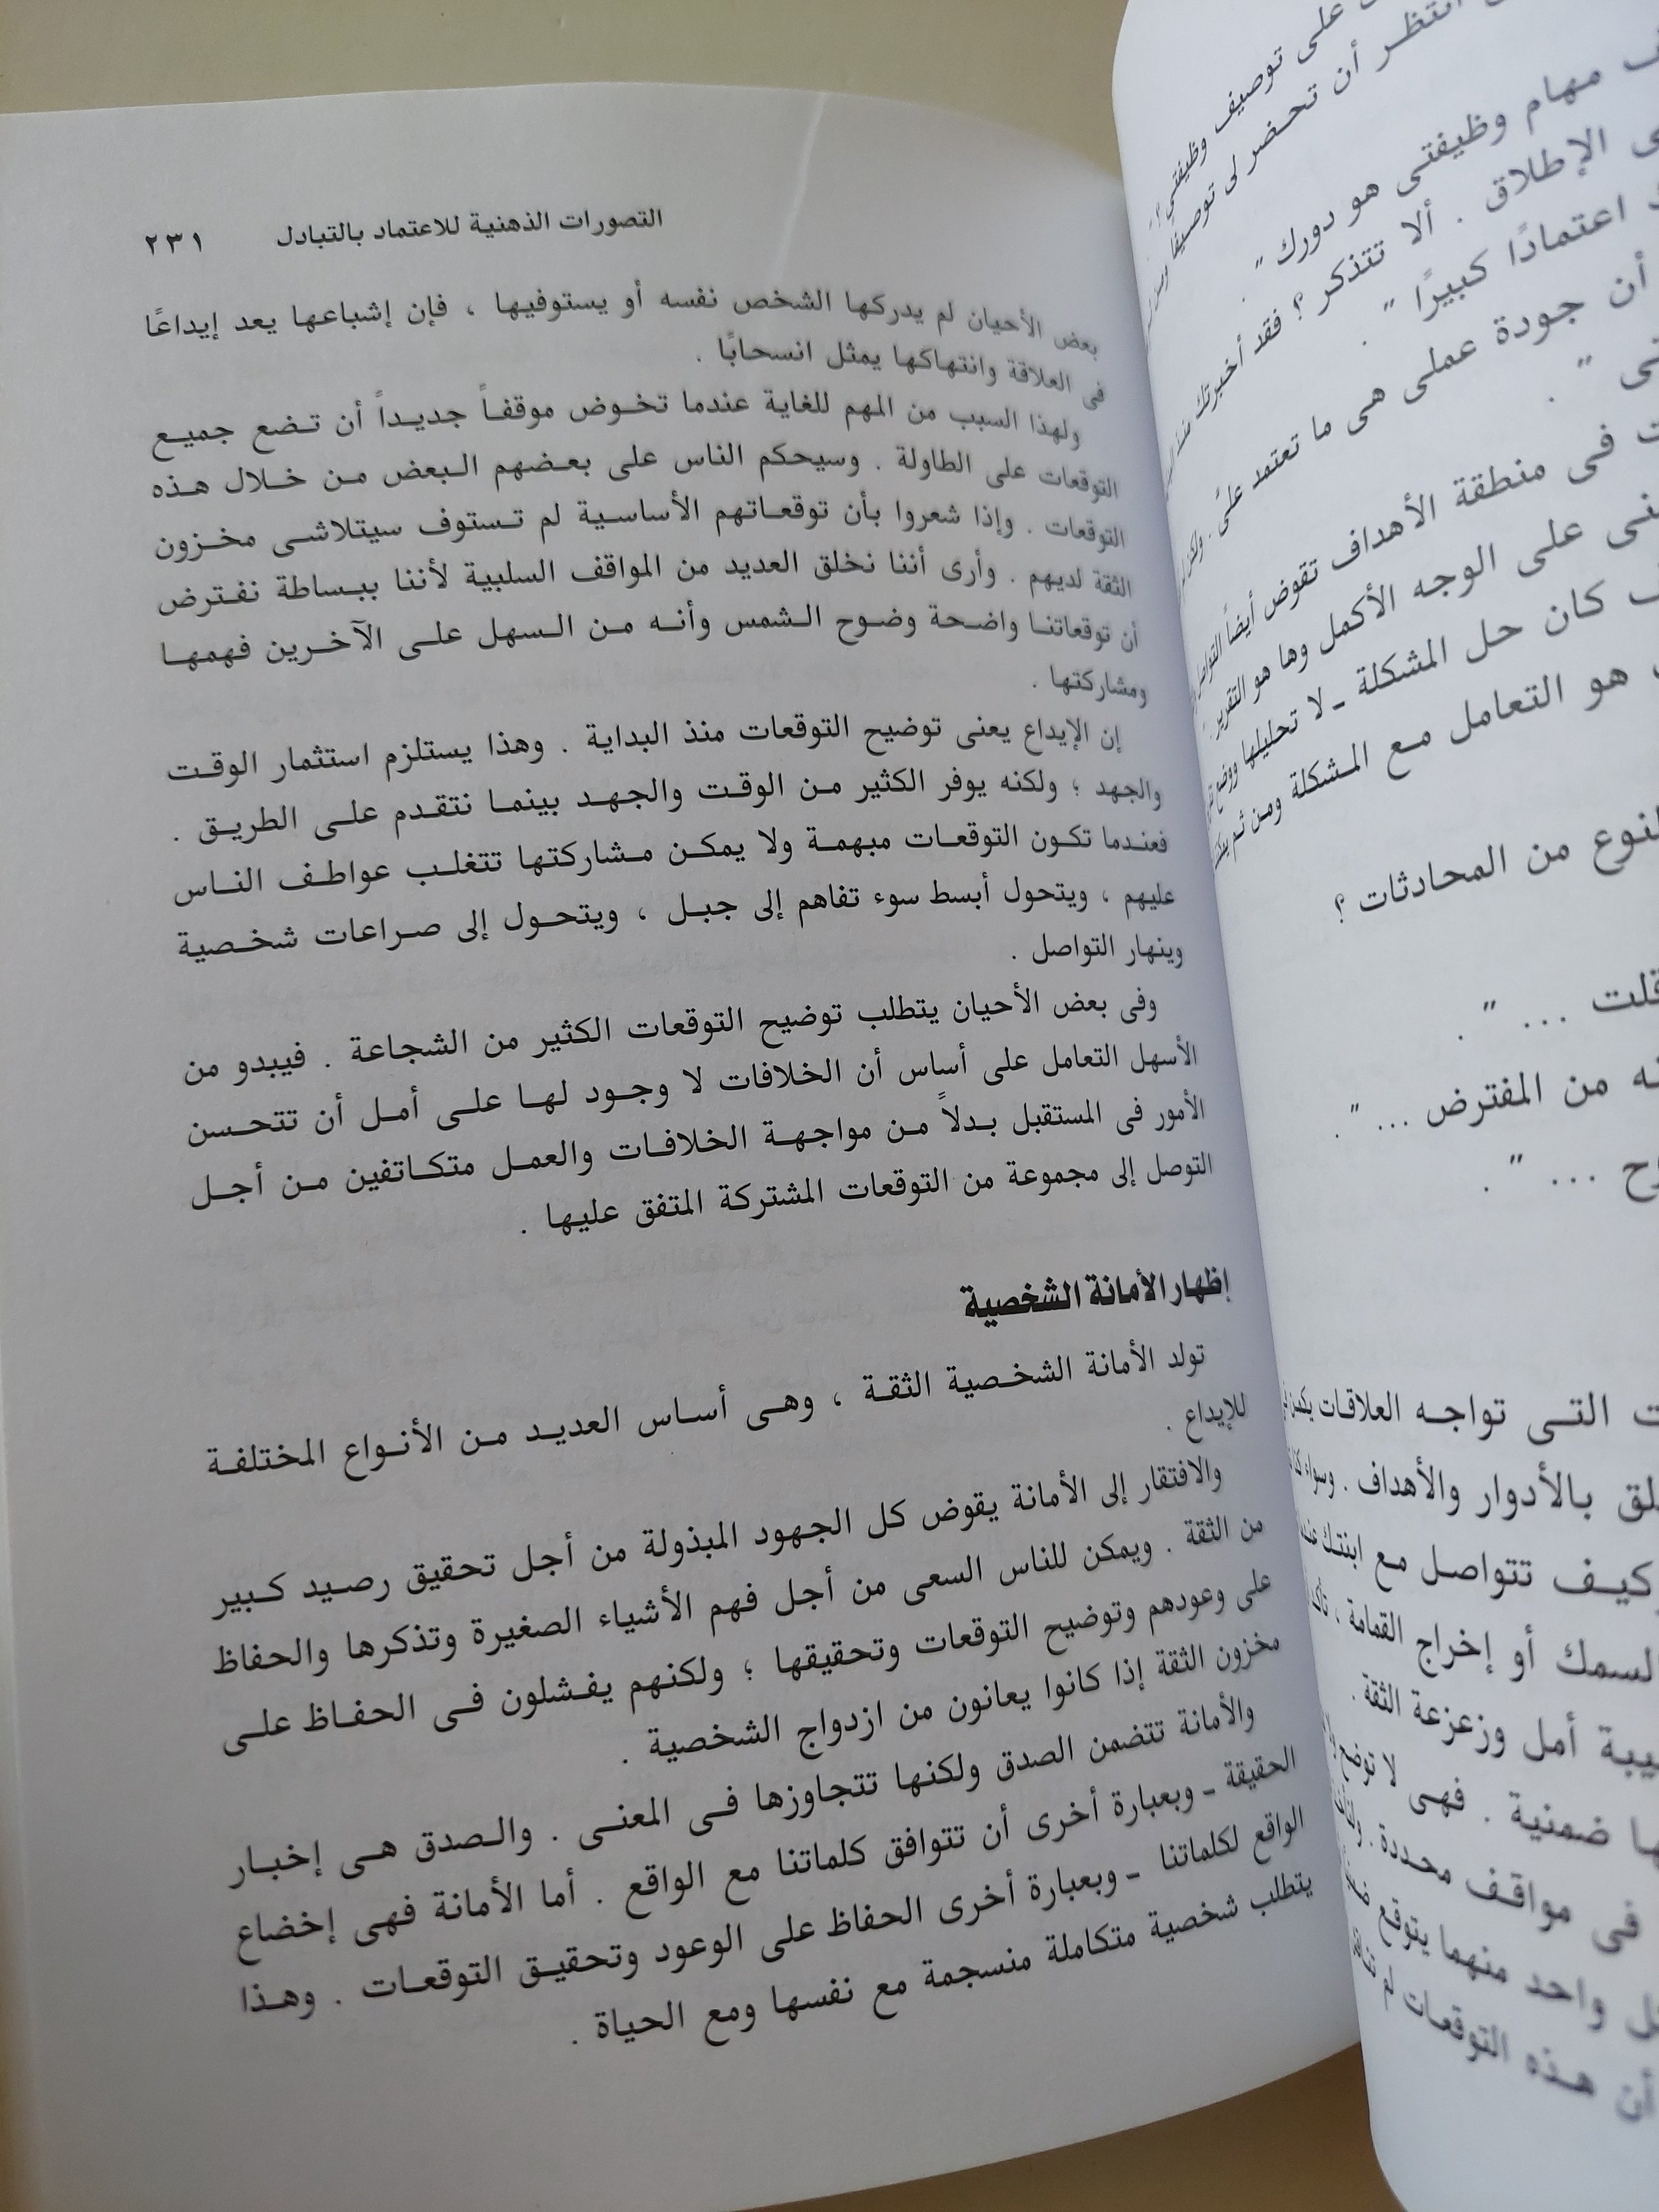 التصورات الذهنية للاعتماد بالتبادل ٢٣١
بعض الأحيان لم يدركها الشخص نفسه أو يستوفيها ، فإن إشباعها يعد إيداعًا
فى العلاقة وانتهاكها يمثل انسحابًا .
ولهذا السبب من المهم للغاية عندما تخوض موقفاً جديداً أن تضع جميع
التوقعات على الطاولة . وسيحكم الناس على بعضهم البعض من خلال هذه
التوقعات . وإذا شعروا بأن توقعاتهم الأساسية لم تستوف سيتلاشى مخزون
الثقة لديهم . وأرى أننا نخلق العديد من المواقف السلبية لأننا ببساطة نفترض
أن توقعاتنا واضحة وضوح الشمس وأنه من السهل على الآخرين فهمها
ومشاركتها .
إن الإيداع يعنى توضيح التوقعات منذ البداية . وهذا يستلزم استثمار الوقت
والجهد ؛ ولكنه يوفر الكثير من الوقت والجهد بينما نتقدم على الطريق .
فعندما تكون التوقعات مبهمة ولا يمكن مشاركتها تتغلب عواطف الناس
عليهم ، ويتحول أبسط سوء تفاهم إلى جبل ، ويتحول إلى صراعات شخصية
وينهار التواصل .
وفى بعض الأحيان يتطلب توضيح التوقعات الكثير من الشجاعة . فيبدو من
الأسهل التعامل على أساس أن الخلافات لا وجود لها على أمل أن تتحسن
الأمور فى المستقبل بدلاً من مواجهة الخلافات والعمل متكاتفين من أجل
التوصل إلى مجموعة من التوقعات المشتركة المتفق عليها .
إظهار الأمانة الشخصية
تولد الأمانة الشخصية الثقة ، وهى أساس العديد من الأنواع المختلفة
للإيداع .
والافتقار إلى الأمانة يقوض كل الجهود المبذولة من أجل تحقيق رصيد كبير
من الثقة . ويمكن للناس السعى من أجل فهم الأشياء الصغيرة وتذكرها والحفاظ
على وعودهم وتوضيح التوقعات وتحقيقها ؛ ولكنهم يفشلون فى الحفاظ على
مخزون الثقة إذا كانوا يعانون من ازدواج الشخصية .
والأمانة تتضمن الصدق ولكنها تتجاوزها فى المعنى . والصدق هى إخبار
الحقيقة – وبعبارة أخرى أن تتوافق كلماتنا مع الواقع . أما الأمانة فهى إخضاع
الواقع لكلماتنا – وبعبارة أخرى الحفاظ على الوعود وتحقيق التوقعات . وهذا
يتطلب شخصية متكاملة منسجمة مع نفسها ومع الحياة .
على توصيف وظيفتي
انتظر أن تحضر لى توصيفًا
مهام وظيفتى هو دورك " .
الإطلاق . ألا تتذكر ؟ فقد أخبرتك منذ
اعتمادًا كبيرًا " .
أن جودة عملى هى ما تعتمد علىّ . ولكن
فى منطقة الأهداف تقوض أيضاً التواصل
على الوجه الأكمل وها هو التقرير .
كان حل المشكلة – لا تحليلها ووضع
هو التعامل مع المشكلة ومن ثم
من المحادثات ؟
قلت ... " .
من المفترض ... " .
... " .
التى تواجه العلاقات يكمن
بالأدوار والأهداف . وسواء كنا
كيف تتواصل مع ابنتك عندما
السمك أو إخراج القمامة ، تأكد
أمل وزعزعة الثقة .
ضمنية . فهى لا توضح
فى مواقف محددة .
واحد منهما يتوقع
أن هذه التوقعات لم